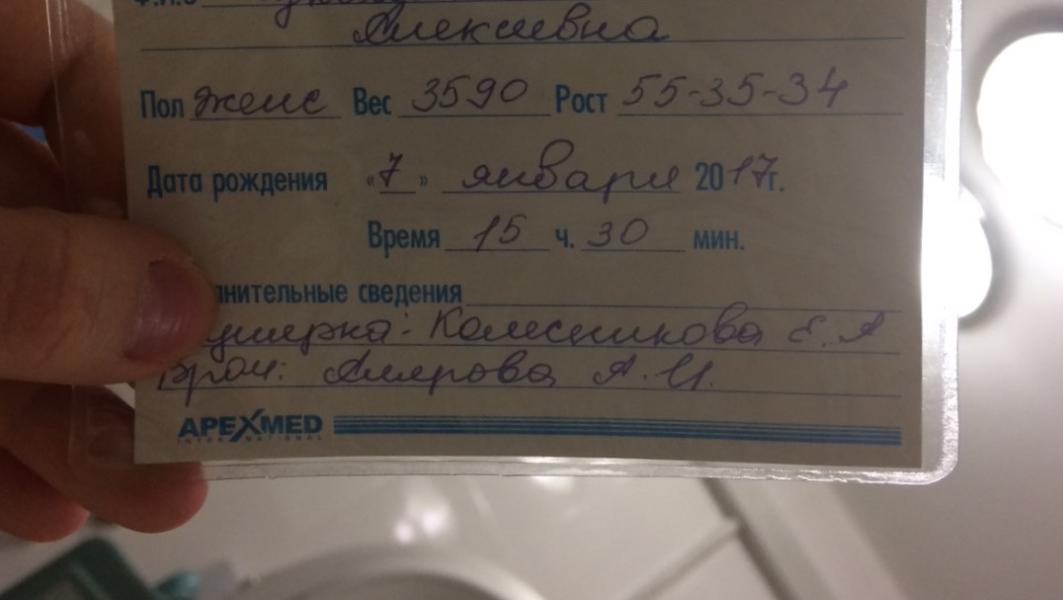 Ф.И.О
Алексеевна
Пол женс Вес 3590 Рост 55-35-34
Дата рождения «7» января 2017г.
Время 15 ч. 30 мин.
нительные сведения
Колесникова Е.А
Врач: А.И.
APEXMED
INTERNATIONAL